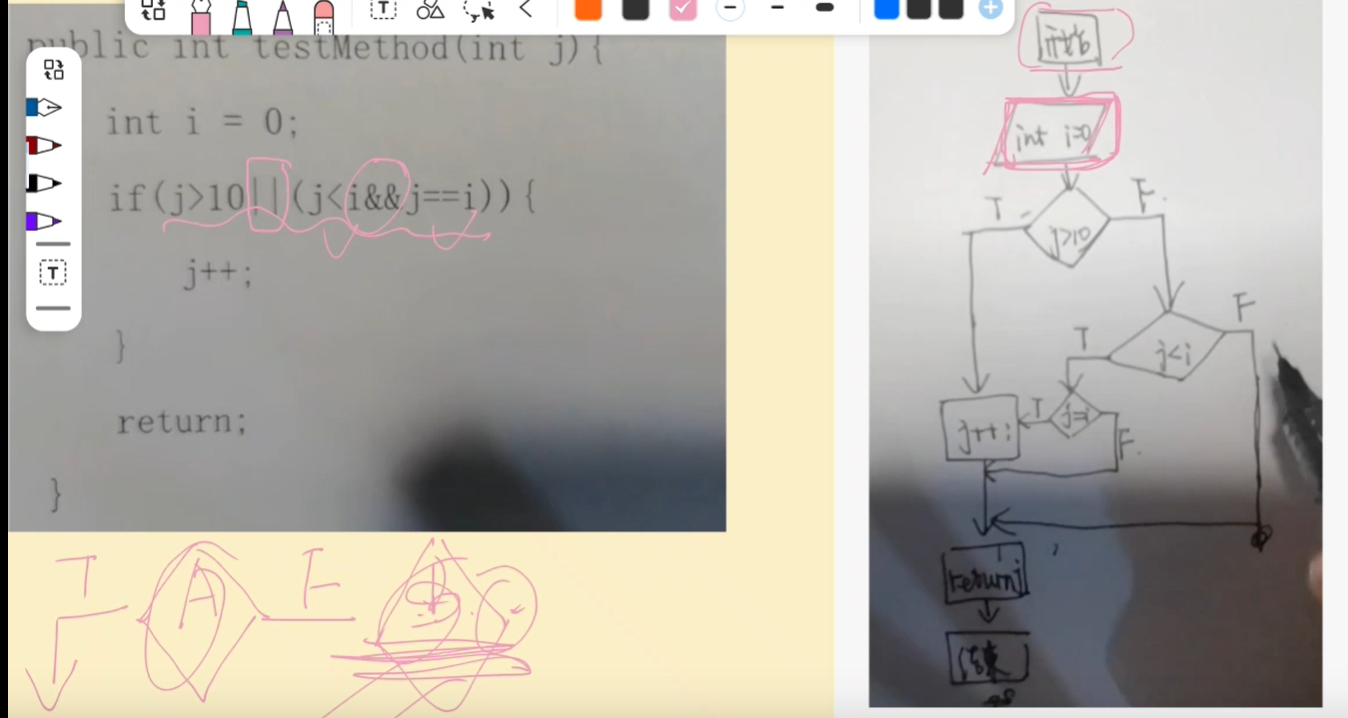 public int testMethod(int j){
int i = 0;
if(j>10||(j<i&&j==i)){
j++;
}
return;
}
T
A
F
T
开始
int i=0
T
F.
j>10
F
T
j<i
T
j=i
j++;
F.
return j
结束